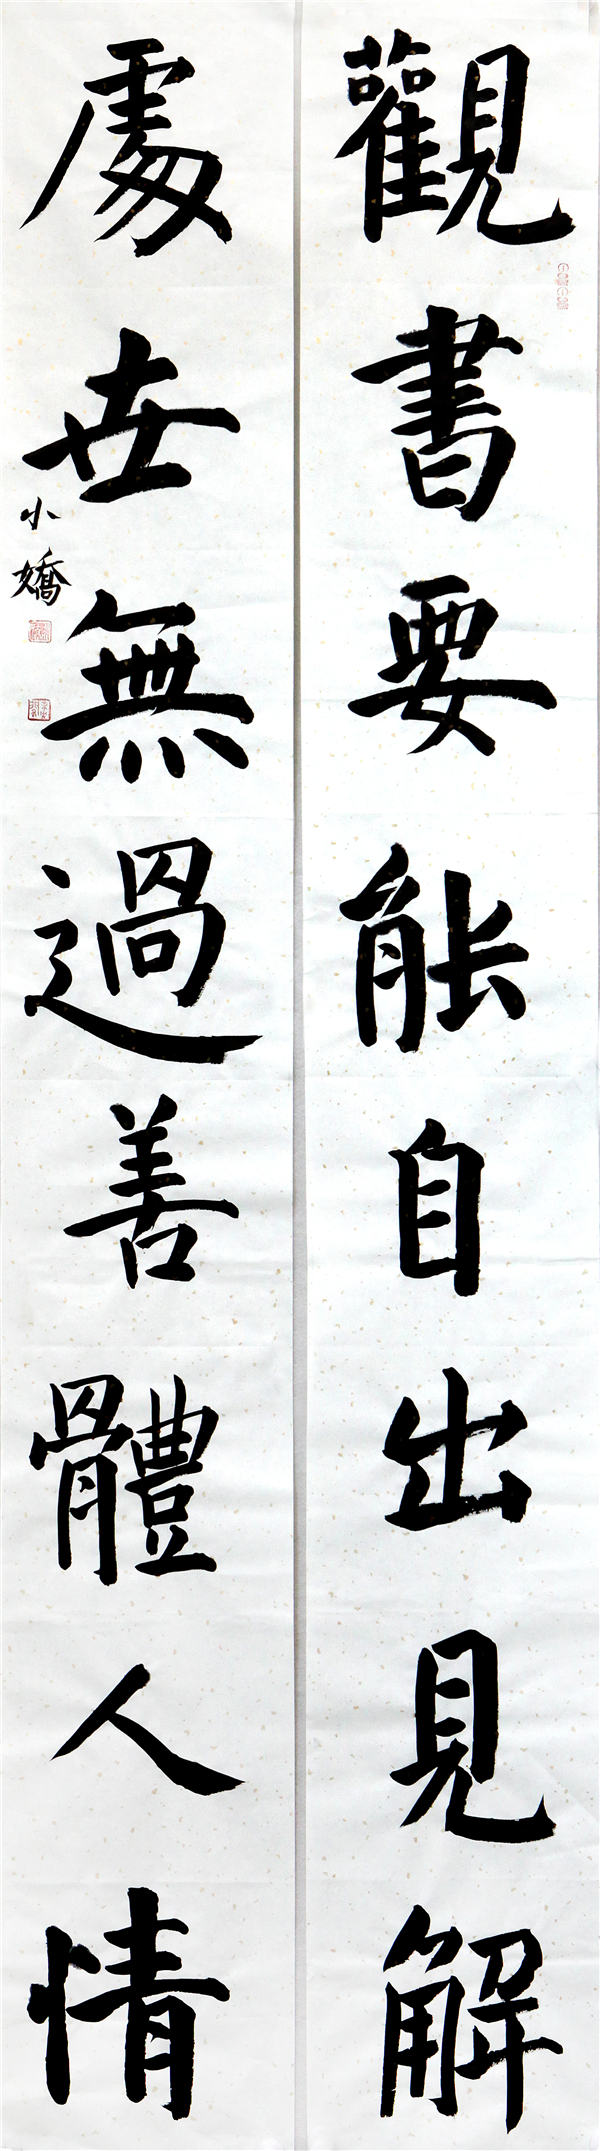 觀書要能自出見解
處世無過善體人情
小嬌